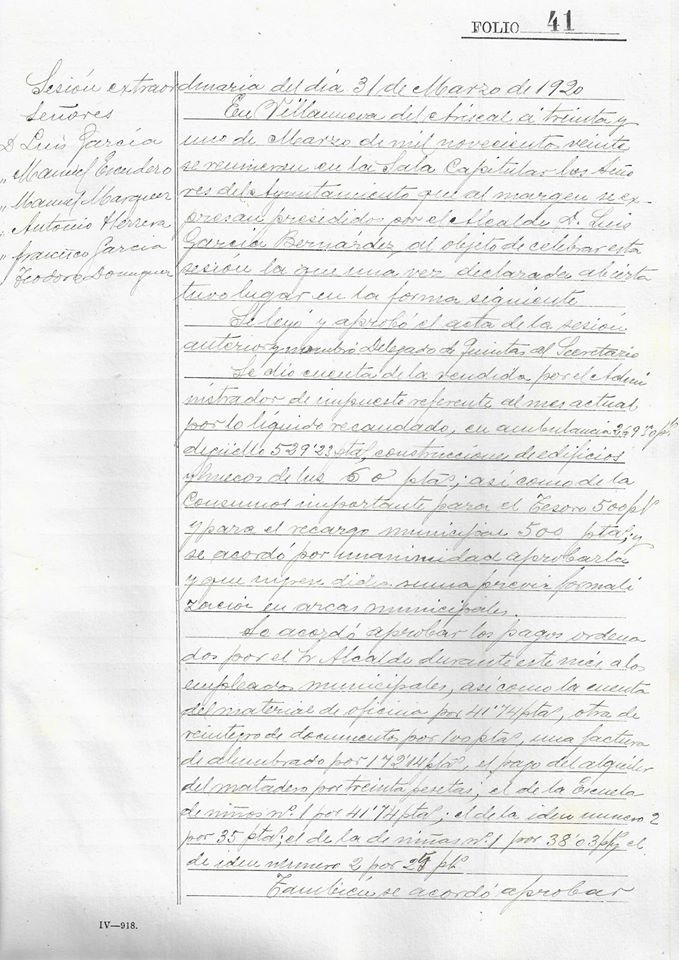 FOLIO 41
Sesión extraordinaria del día 31 de Marzo de 1920
Señores
D Luis García
" Manuel Escudero
" Manuel Marquez
" Antonio Herrera
" Francisco García
" Teodoro Dominguez
En Villanueva del Ariscal á treinta y
uno de Marzo de mil novecientos veinte
se reunieron en la Sala Capitular los Seño
res del Ayuntamiento que al margen se ex-
presan presididos por el Alcalde D. Luis
García Bernárdez, al objeto de celebrar esta
sesión la que una vez declarada abierta
tuvo lugar en la forma siguiente
Se leyó y aprobó el acta de la sesión
anterior y nombró Delegado de Quintas al Secretario
Se dio cuenta de la rendida por el Admi
nistrador de impuesto referente al mes actual
por lo líquido recaudado, en ambulancia
degüello 529'23 ptas, construcciones de edificios
y huecos de luz 60 ptas; así como de la
Consumos importante para el Tesoro 500 pts
y para el recargo municipal 500 ptas; y
se acordó por unanimidad aprobarla
y que ingrese dicha suma previa formali
zación en arcas municipales.
Se acordó aprobar los pagos ordena
dos por el Sr Alcalde durante este mes a los
empleados municipales, así como la cuenta
del material de oficina por 41'74 ptas, otra de
reintegro de documentos por 100 ptas, una factura
de alumbrado por ptas, el pago del alquiler
del matadero por treinta pesetas; el de la Escuela
de niños nº. 1 por 41'74 ptas; el de la idem numero 2
por 35 ptas; el de la de niñas nº. 1 por 38'03 pts y el
de idem número 2 por ptas
También se acordó aprobar
IV—918.